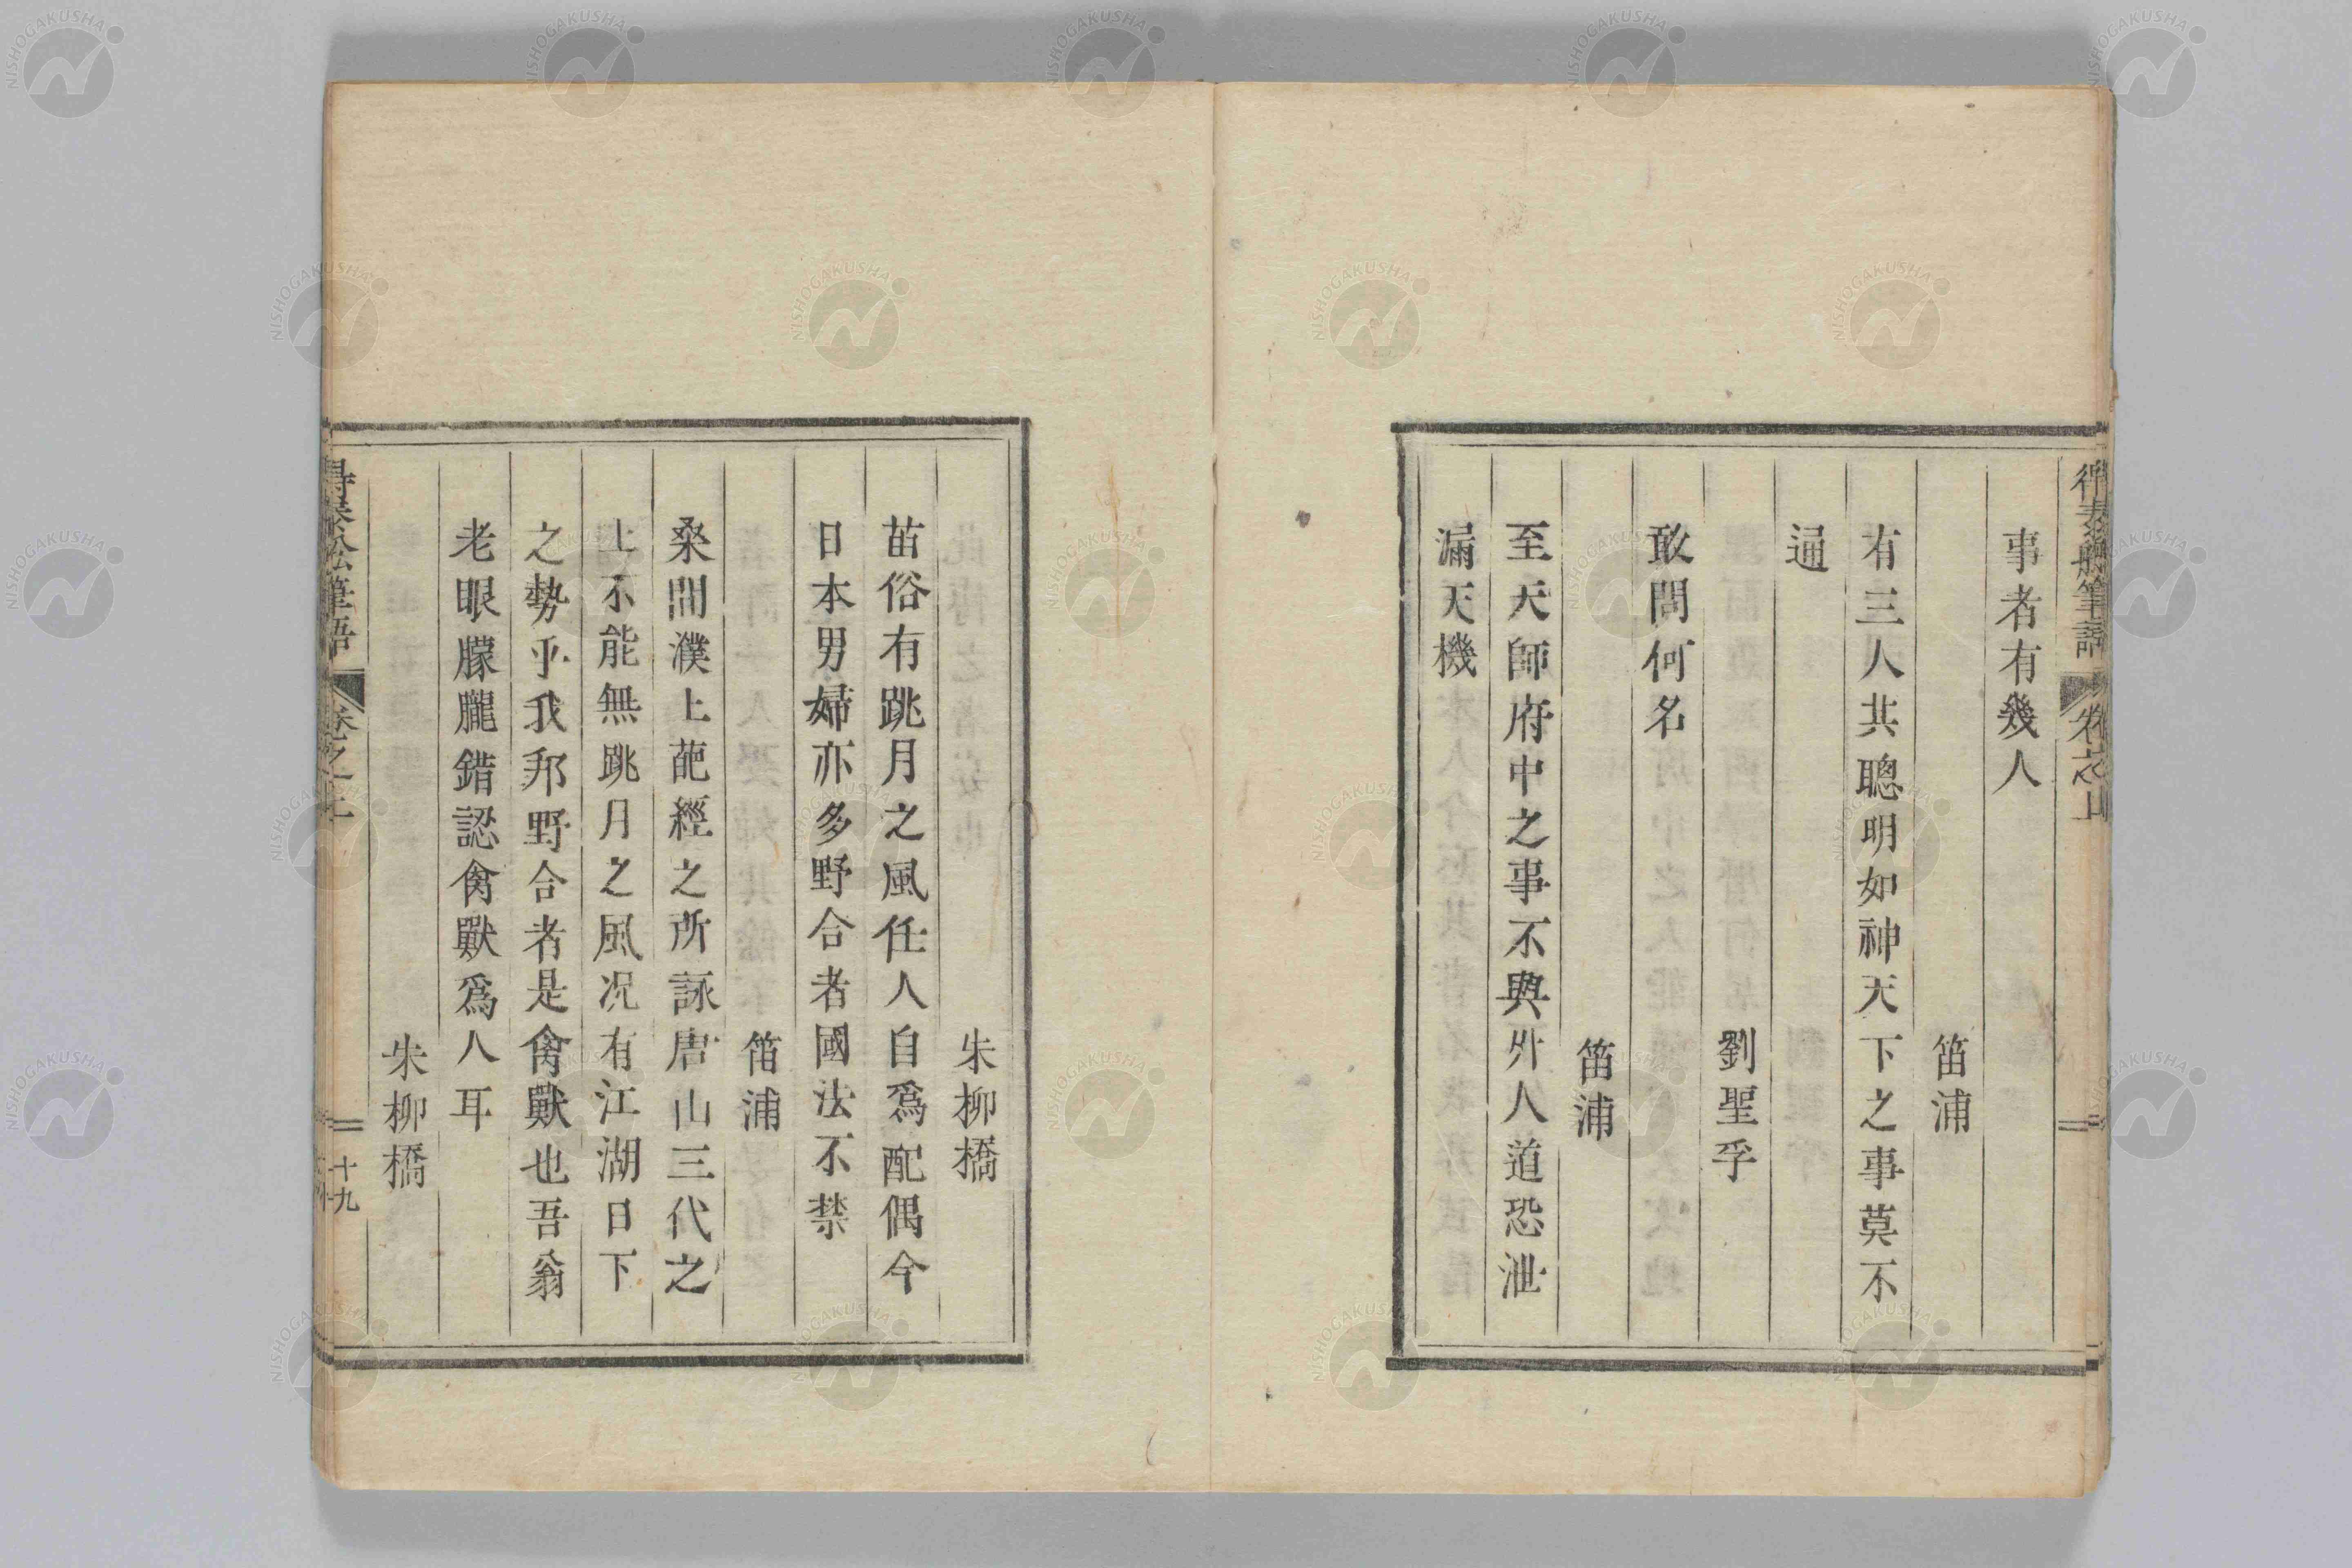 事者有幾人
笛浦
有三人共聰明如神天下之事莫不
通
劉聖孚
敢問何名
笛浦
至天師府中之事不與外人道恐泄
漏天機
朱柳橋
苗俗有跳月之風任人自爲配偶今
日本男婦亦多野合者國法不禁
笛浦
桑間濮上葩經之所詠唐山三代之
上不能無跳月之風况有江湖日下
之勢乎我邦野合者是禽獸也吾翁
老眼朦朧錯認禽獸爲人耳
朱柳橋
得泰船筆語
卷之上
十九
NISHOGAKUSHA